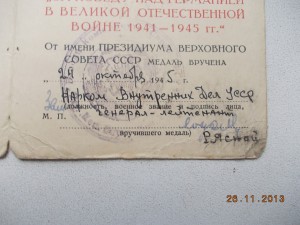 "ЗА ПОБЕДУ НАД ГЕРМАНИЕЙ
В ВЕЛИКОЙ ОТЕЧЕСТВЕННОЙ
ВОЙНЕ 1941—1945 гг."
От имени ПРЕЗИДИУМА ВЕРХОВНОГО
СОВЕТА СССР МЕДАЛЬ ВРУЧЕНА
"29" октября 1945 г.
Нарком Внутренних Дел УССР
должность, военное звание и подпись лица,
М. П. генерал-лейтенант
вручившего медаль)
Рясной
26.11.2013